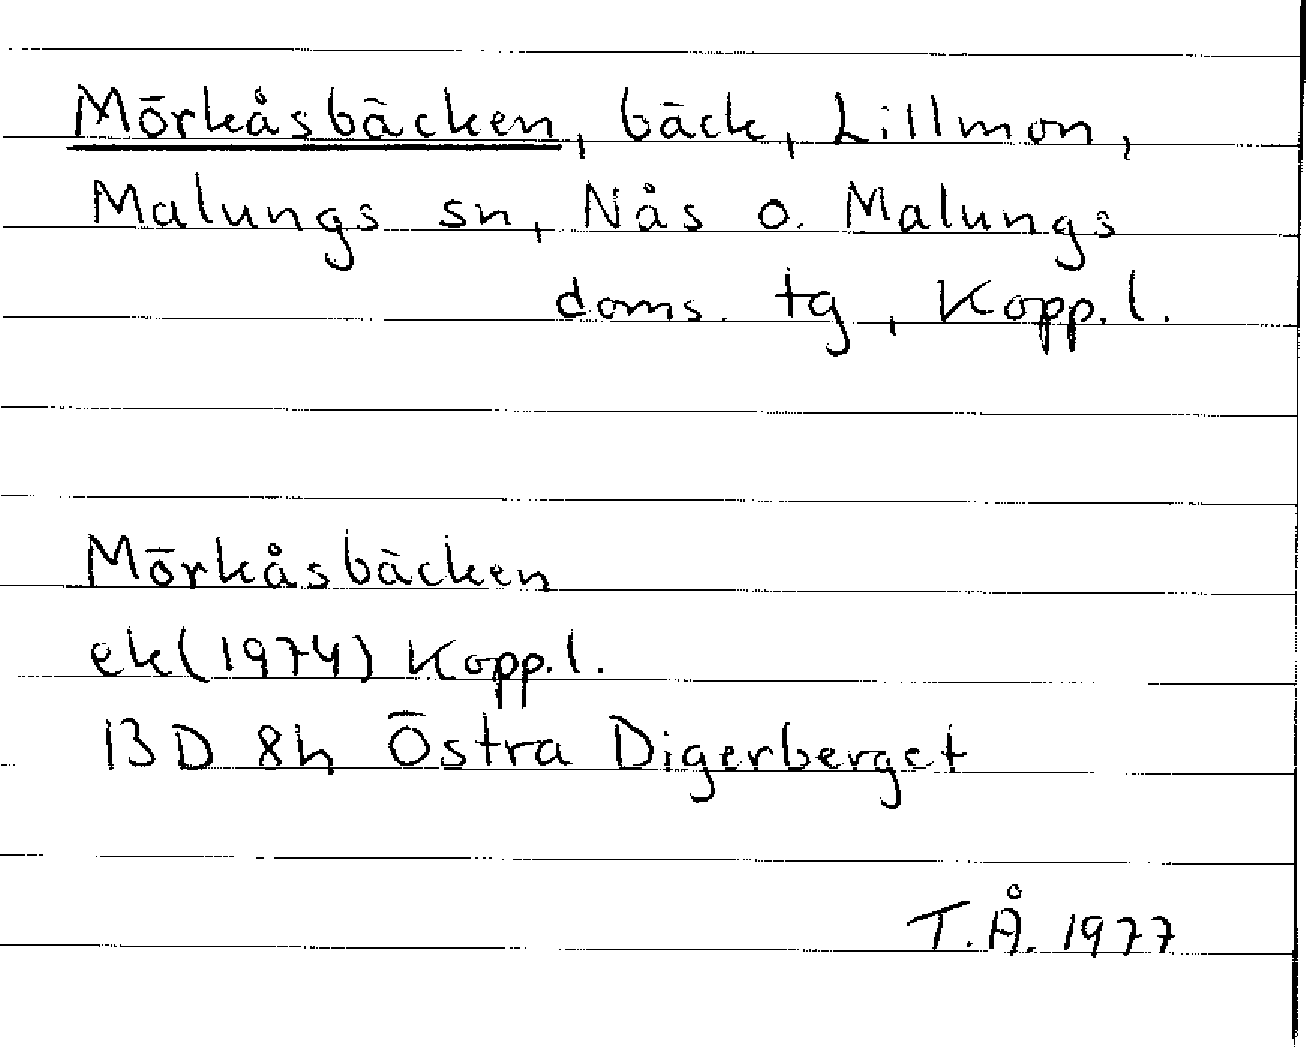 Mörkåsbäcken, bäck, Lillmon,
Malungs sn, Nås o. Malungs
doms. tg, Kopp. l.
Mörkåsbäcken
ek (1974) Kopp. l.
13 D 8h Östra Digerberget
T.Å. 1977